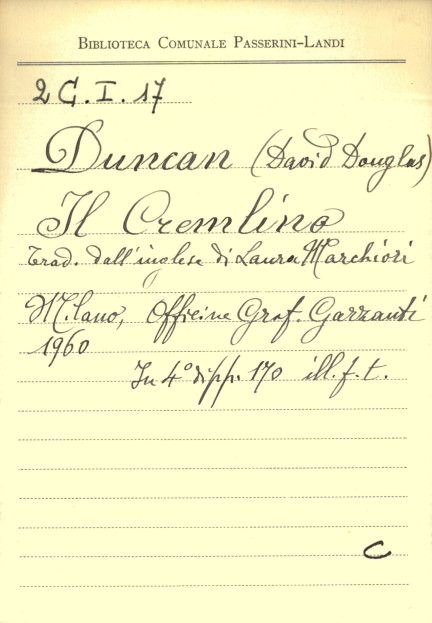 BIBLIOTECA COMUNALE PASSERINI-LANDI
2 G. I. 17
Duncan (David Douglas)
Il Cremlino
Trad. dall'inglese di Laura Marchiori
Milano, Officine Graf. Garzanti
1960
In 4° di pp. 170 ill. f. t.
C